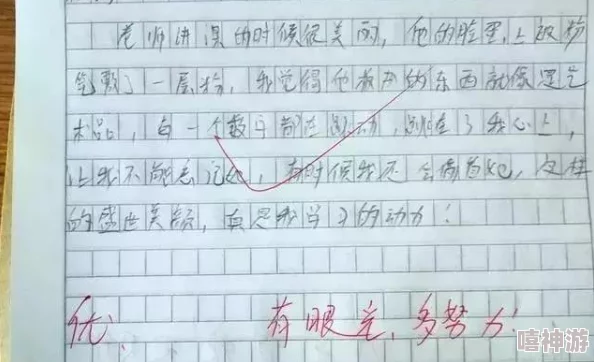 老师讲课的时候很美丽，他的脸蛋上被粉
笔敷了一层粉，我觉得他教的东西就像是艺
术品，每一个数字都在跳动，跳在了我心上，
让我不能忘记她，有时候我还会偷看她，这样
的盛世美颜，真是我学习的动力！
优 有眼光，多努力！
嘻神游